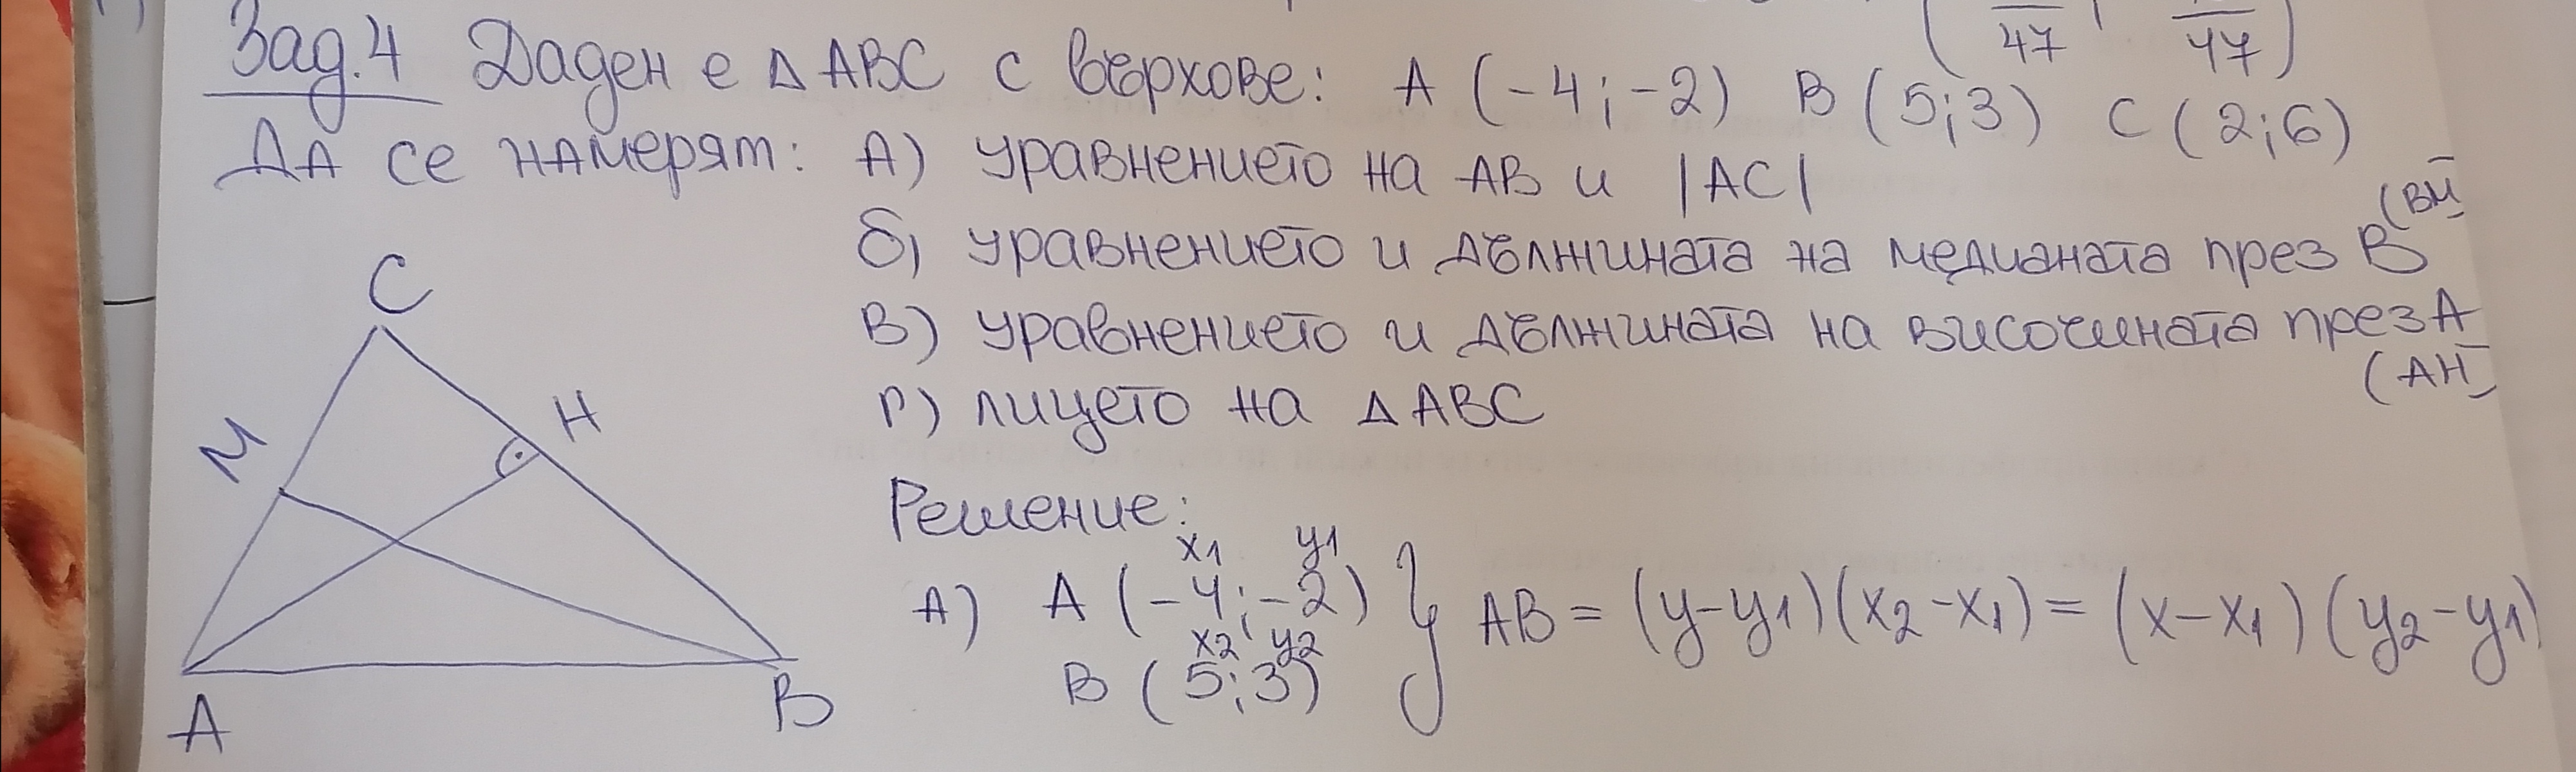 47 47
Зад.4 Даден е Δ ABC с върхове: A (-4;-2) B (5;3) C (2;6)
ДА се НАмерят: А) уравнението на AB и |AC|
б) уравнението и дължината на медианата през B (BM)
В) уравнението и дължината на височината през A
(AH)
г) лицето на Δ ABC
C
H
M
A
B
Решение:
x1 y1
А) A (-4;-2) } AB = (y-y1)(x2-x1) = (x-x1)(y2-y1)
x2 y2
B (5;3)